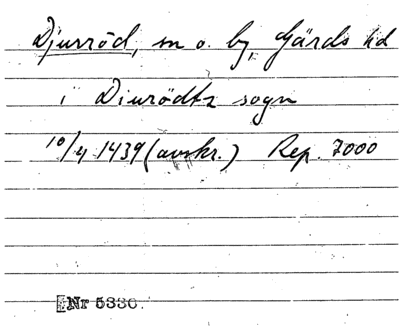 Djurröd, sn o. by, Gärds hd
i Diurödtz sogn
10/4 1439 (avskr.) Rep. 7000
Nr 5336